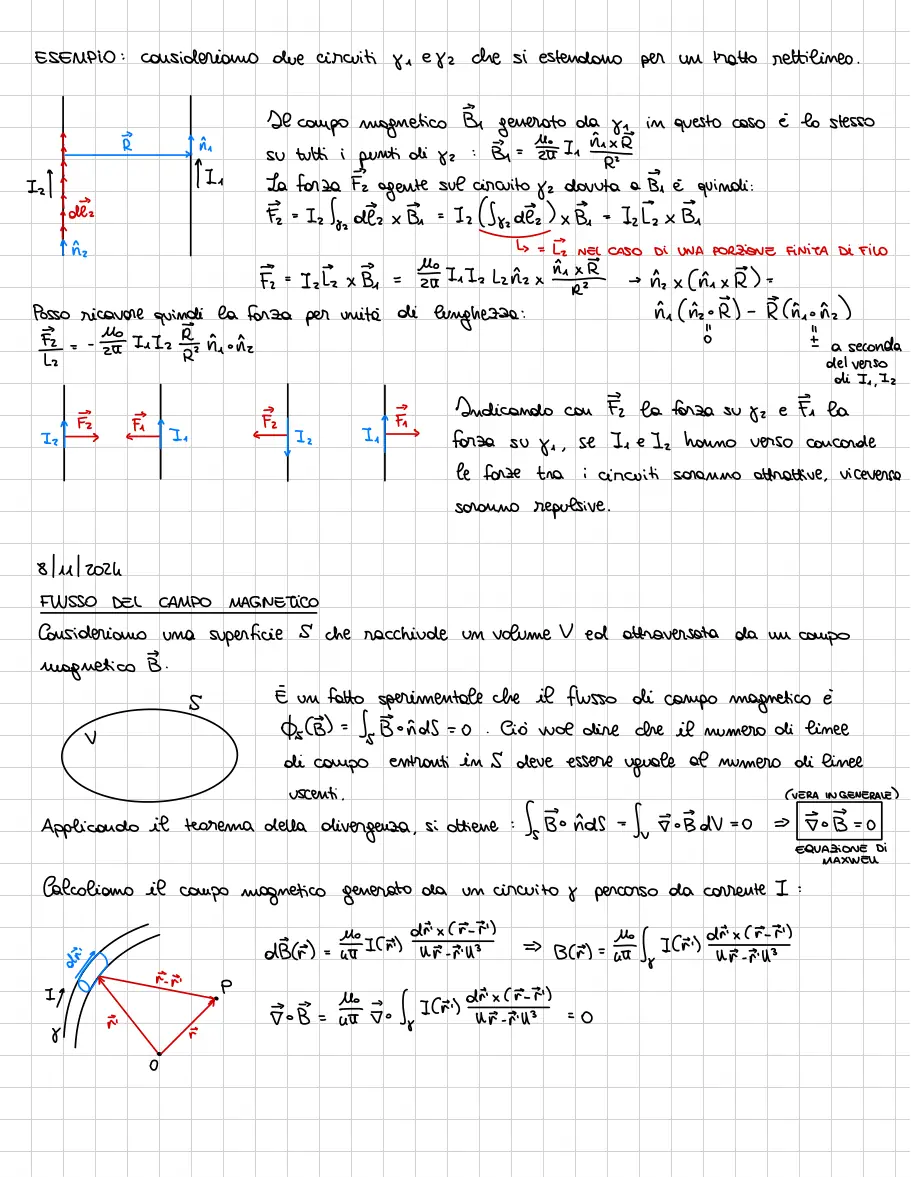 ESEMPIO: consideriamo due circuiti γ₁ e γ₂ che si estendono per un tratto rettilineo.
Il campo magnetico B⃗₁ generato da γ₁ in questo caso è lo stesso
su tutti i punti di γ₂ : B⃗₁ = μ₀/2π I₁ n̂₁×R⃗/R²
R⃗ n̂₁ I₂ I₁ dl⃗₂ n̂₂
La forza F⃗₂ agente sul circuito γ₂ dovuta a B⃗₁ è quindi:
F⃗₂ = I₂ ∫γ₂ dl⃗₂ × B⃗₁ = I₂ (∫γ₂ dl⃗₂) × B⃗₁ = I₂ L⃗₂ × B⃗₁
↳ = L⃗₂ NEL CASO DI UNA PORZIONE FINITA DI FILO
F⃗₂ = I₂ L⃗₂ × B⃗₁ = μ₀/2π I₁ I₂ L₂ n̂₂ × n̂₁×R⃗/R² → n̂₂ × (n̂₁ × R⃗) =
Posso ricavare quindi la forza per unità di lunghezza: n̂₁ (n̂₂∘R⃗) - R⃗ (n̂₁∘n̂₂)
F⃗₂/L₂ = - μ₀/2π I₁ I₂ R⃗/R² n̂₁∘n̂₂
= 0
= ± a seconda
del verso
di I₁, I₂
I₂ F⃗₂ F⃗₁ I₁ F⃗₂ I₂ I₁ F⃗₁
Indicando con F⃗₂ la forza su γ₂ e F⃗₁ la
forza su γ₁, se I₁ e I₂ hanno verso concorde
le forze tra i circuiti saranno attrattive, viceversa
saranno repulsive.
8/11/2024
FLUSSO DEL CAMPO MAGNETICO
Consideriamo una superficie S che racchiude un volume V ed attraversata da un campo
magnetico B⃗.
S V
È un fatto sperimentale che il flusso di campo magnetico è
ϕₛ(B⃗) = ∫ₛ B⃗∘n̂dS = 0 . Ciò vuol dire che il numero di linee
di campo entranti in S deve essere uguale al numero di linee
uscenti.
(VERA IN GENERALE)
Applicando il teorema della divergenza, si ottiene : ∫ₛ B⃗∘n̂dS = ∫ᵥ ∇⃗∘B⃗ dV = 0 ⇒ ∇⃗∘B⃗ = 0
EQUAZIONE DI
MAXWELL
Calcoliamo il campo magnetico generato da un circuito γ percorso da corrente I :
dB⃗(r⃗) = μ₀/4π I(r⃗') dr⃗'×(r⃗-r⃗')/‖r⃗-r⃗'‖³ ⇒ B(r⃗) = μ₀/4π ∫γ I(r⃗') dr⃗'×(r⃗-r⃗')/‖r⃗-r⃗'‖³
dr⃗' r⃗-r⃗' P I r⃗' r⃗ γ O
∇⃗∘B⃗ = μ₀/4π ∇⃗∘ ∫γ I(r⃗') dr⃗'×(r⃗-r⃗')/‖r⃗-r⃗'‖³ = 0